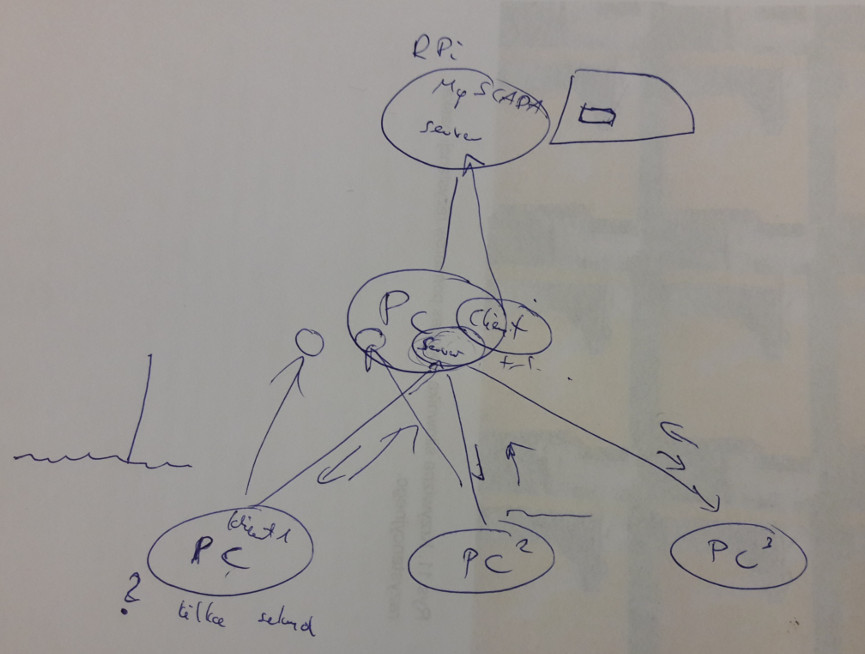 RPi
My SCADA
server
PC
Client
Server
klient 1
PC
PC 2
PC 3
?
kilka sekund